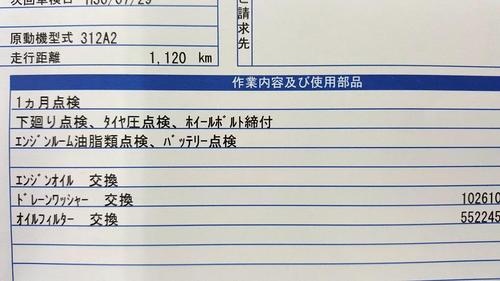 次回車検日 H30/07/29
ご請求先
原動機型式 312A2
走行距離 1,120 km
作業内容及び使用部品
1ヵ月点検
下廻り点検、ﾀｲﾔ圧点検、ﾎｲｰﾙﾎﾞﾙﾄ締付
ｴﾝｼﾞﾝﾙｰﾑ油脂類点検、ﾊﾞｯﾃﾘｰ点検
ｴﾝｼﾞﾝｵｲﾙ 交換
ﾄﾞﾚｰﾝﾜｯｼｬｰ 交換 102610
ｵｲﾙﾌｨﾙﾀｰ 交換 552245